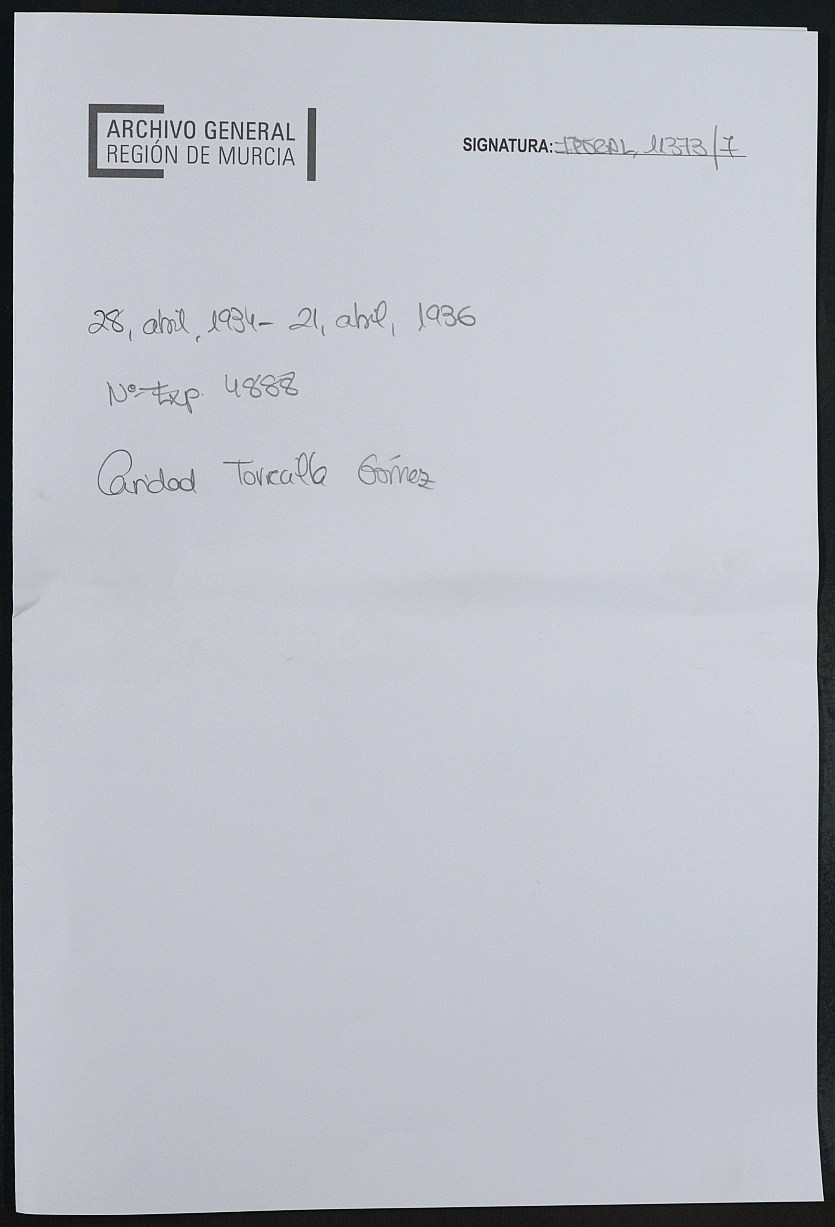 ARCHIVO GENERAL
REGIÓN DE MURCIA
SIGNATURA: IPERAL, 11373/7
28, abril, 1934 - 21, abril, 1936
Nº Exp. 4888
Caridad Torralba Gómez